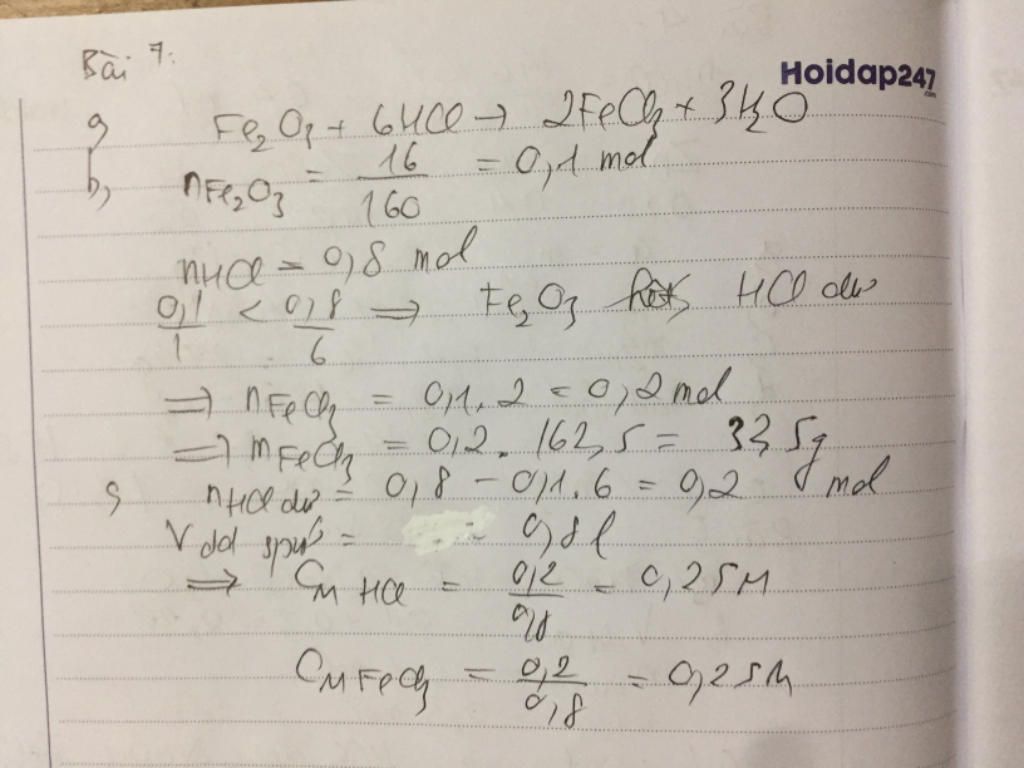 Bài 7:
Hoidap247
.com
a, Fe2O3 + 6HCl → 2FeCl3 + 3H2O
b, nFe2O3 = 16/160 = 0,1 mol
nHCl = 0,8 mol
0,1/1 < 0,8/6 ⇒ Fe2O3 hết, HCl dư
⇒ nFeCl3 = 0,1.2 = 0,2 mol
⇒ mFeCl3 = 0,2.162,5 = 32,5g
c, nHCl dư = 0,8 - 0,1.6 = 0,2 mol
Vdd spư = = 0,8l
⇒ CM HCl = 0,2/0,8 = 0,25M
CM FeCl3 = 0,2/0,8 = 0,25M